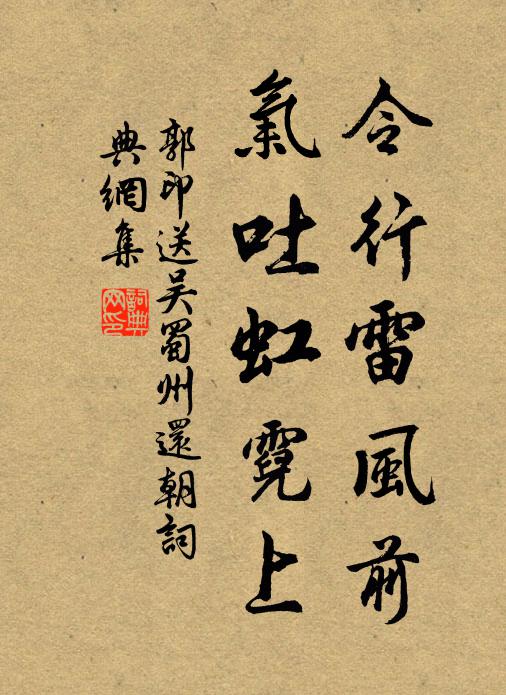 令行雷風前
氣吐虹霓上
郭印送吳蜀州還朝詞
典網集
詞典網印